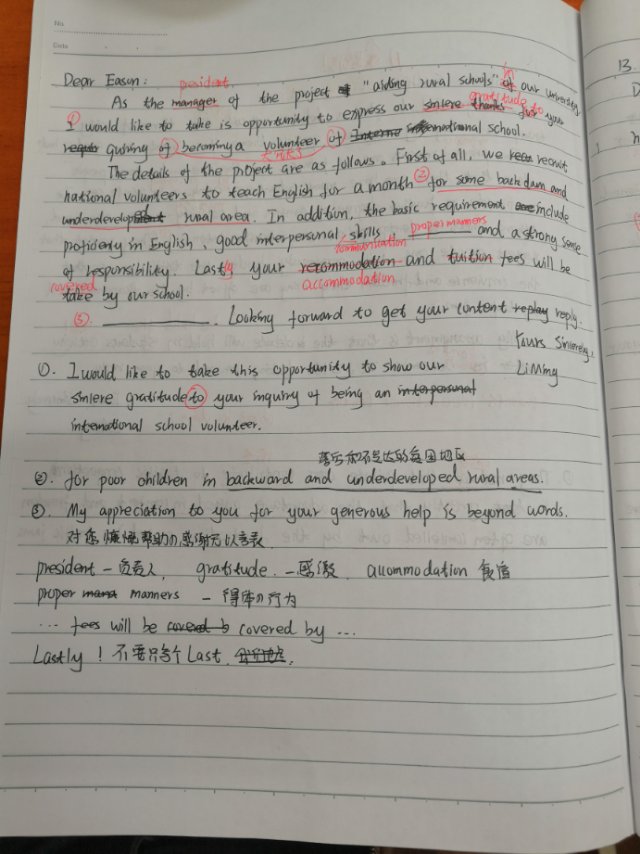 No.
Date
Dear Eason:
president
As the manager of the project "aiding rural schools" of our University,
in
gratitude to
① I would like to take is opportunity to express our sincere thanks for your
requir quiring of becoming a volunteer of Interna international school.
The details of the project are as follows. First of all, we recruit
national volunteers to teach English for a month ② for some back dam and
underdevelopment rural area. In addition, the basic requirement are include
proper manners
proficiency in English, good interpersonal skills, and a strong sense
communication
of responsibility. Lastly your recommodation and tuition fees will be
covered
accommodation
take by our school.
③. . Looking forward to get your content replay reply.
Yours sincerely,
LiMing
①. I would like to take this opportunity to show our
sincere gratitude to your inquiry of being an interpersonal
international school volunteer.
落后和不发达的贫困地区
②. for poor children in backward and underdeveloped rural areas.
③. My appreciation to you for your generous help is beyond words.
对您慷慨帮助的感谢无以言表
president - 负责人, gratitude. - 感激, accommodation 食宿
proper manners - 得体的行为
... fees will be covered b covered by ...
Lastly! 不要只写个Last
13.